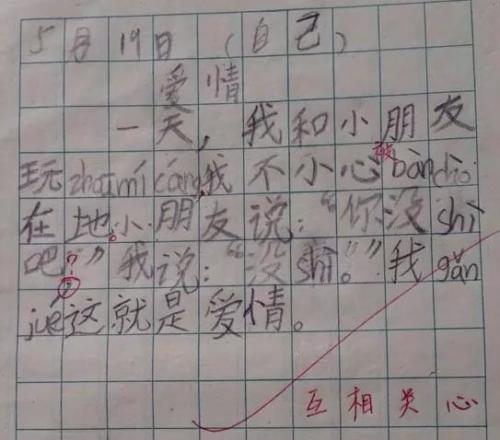 5月19日（自己）
爱情
一天，我和小朋友
玩zhuōmí cáng，我不小心被bàn dǎo
在地。小朋友说：“你没shì
吧？”我说：“没shì。”我gǎn
jué这就是爱情。
互相关心